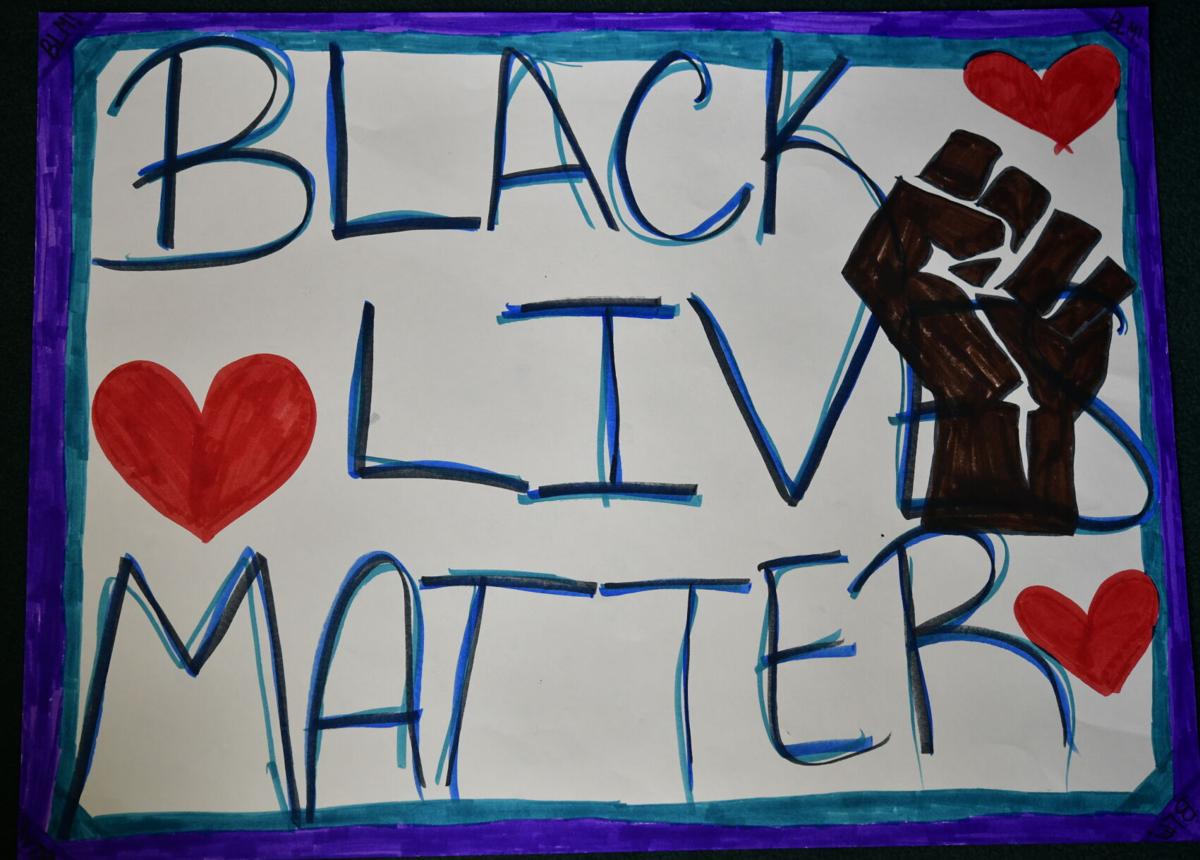 BLM!
BLM!
BLACK
LIVES
MATTER
BLM